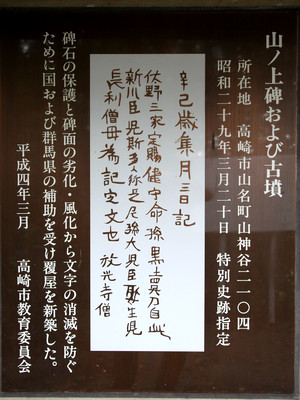 山ノ上碑および古墳
所在地　高崎市山名町山神谷二一〇四
昭和二十九年三月二十日　特別史跡指定
辛己歳集月三日記
佐野三家定賜健守命孫黒売刀自此
新川臣児斯多々弥足尼孫大児臣娶生児
長利僧母為記定文也　放光寺僧
碑石の保護と碑面の劣化・風化から文字の消滅を防ぐ
ために国および群馬県の補助を受け覆屋を新築した。
平成四年三月　高崎市教育委員会